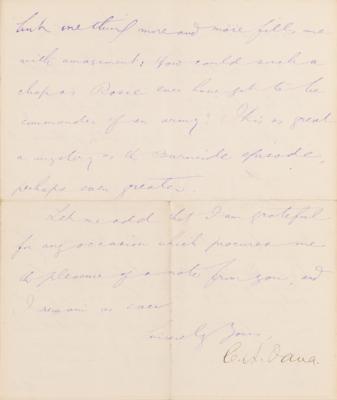 but one thing more and more fills me
with amazement; how could such a
chap as Rosie ever have got to be
commander of an army? This as great
a mystery as the Burnside episode,
perhaps even greater.
Let me add that I am grateful
for any occasion which procures me
the pleasure of a note from you, and
I remain as ever
Sincerely Yours,
C. A. Dana.